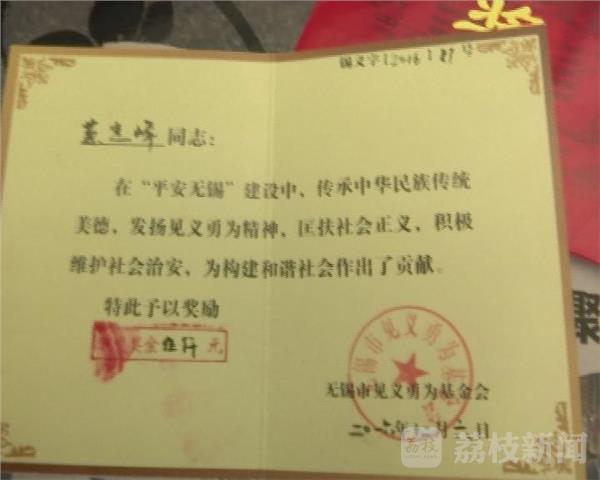 锡义字〔2016〕87号
志峰 同志:
在“平安无锡”建设中、传承中华民族传统
美德、发扬见义勇为精神、匡扶社会正义、积极
维护社会治安、为构建和谐社会作出了贡献。
特此予以奖励
奖金伍仟元
无锡市见义勇为基金会
无锡市见义勇为基金会
二〇一六年 月 日
荔枝
荔枝新闻